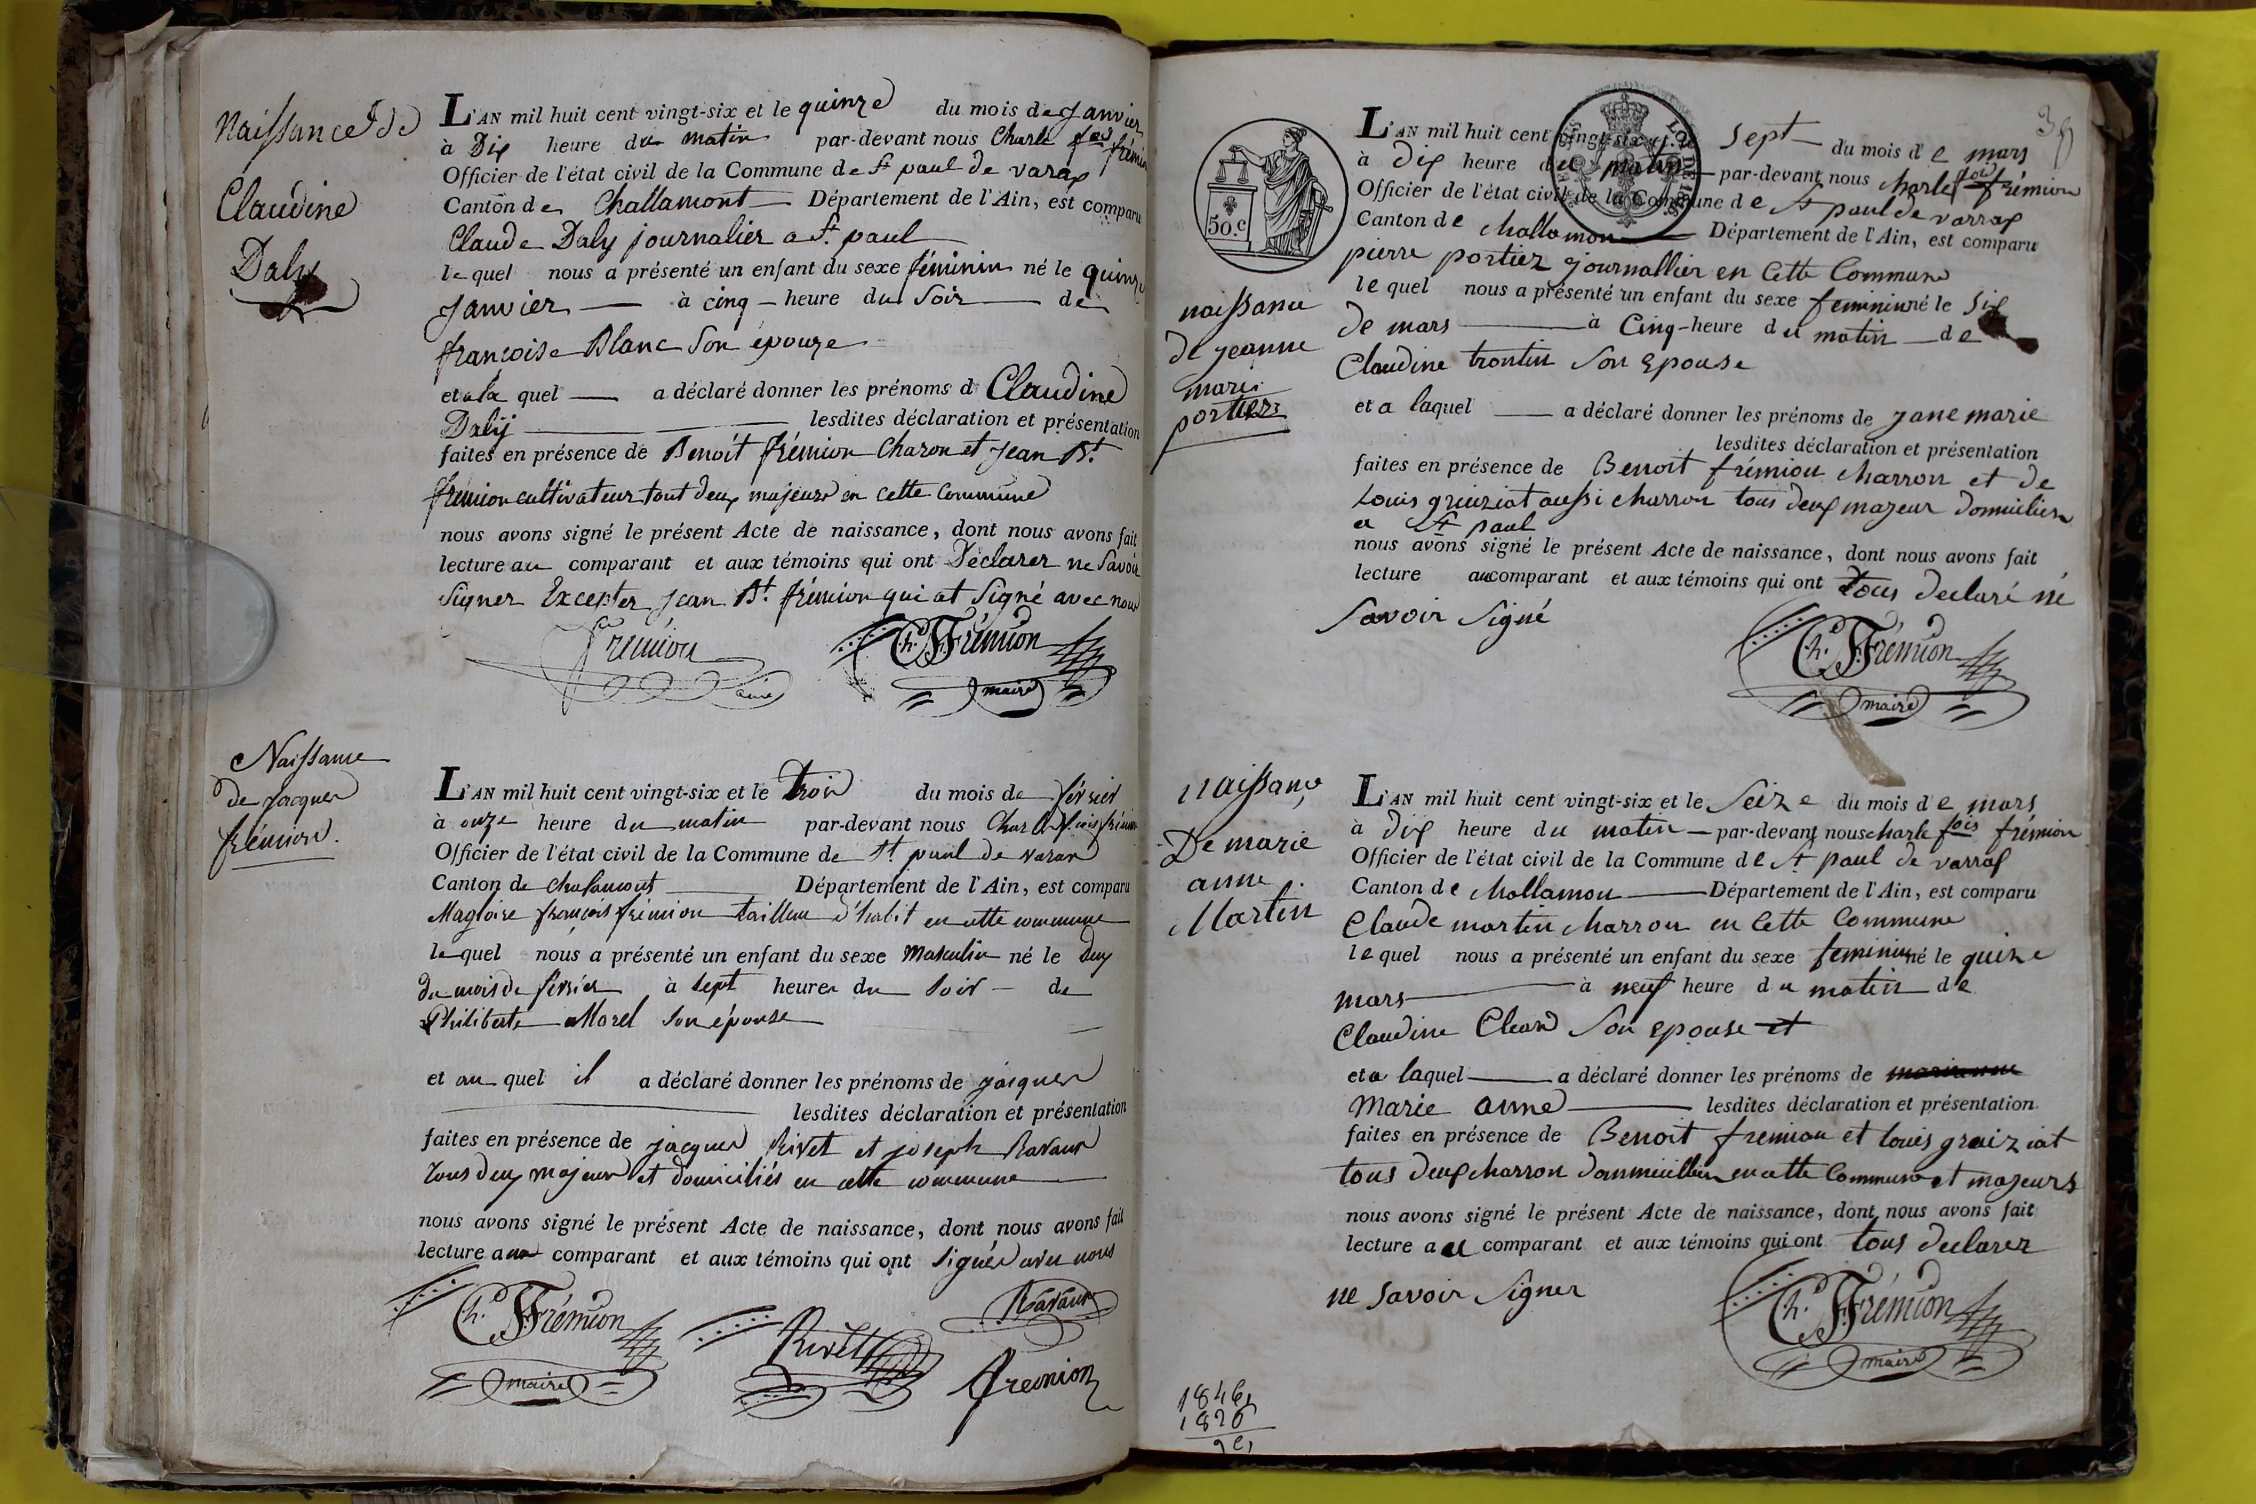 Naissance de
Claudine
Daly
L'AN mil huit cent vingt-six et le quinze du mois de Janvier
à Dix heure du matin par-devant nous Charle fois frémion
Officier de l'état civil de la Commune de St paul de varax
Canton de Challamont Département de l'Ain, est comparu
Claude Daly journalier a St paul
lequel nous a présenté un enfant du sexe féminin né le quinze
Janvier à cinq heure du Soir de
françoise Blanc Son épouze
et a la quel a déclaré donner les prénoms de Claudine
Daly lesdites déclaration et présentation
faites en présence de Benoit frémion Charon et Jean Bt
frémion cultivateur tout deux majeurs en cette Commune
nous avons signé le présent Acte de naissance, dont nous avons fait
lecture au comparant et aux témoins qui ont Déclarer ne Savoir
Signer Excepter Jean Bt frémion qui at Signé avec nous
Frémion
Ch. F. Frémion
maire
Naissance
de Jacques
frémion.
L'AN mil huit cent vingt-six et le trois du mois de février
à onze heure du matin par-devant nous Charle fois frémion
Officier de l'état civil de la Commune de St paul de varax
Canton de chalamont Département de l'Ain, est comparu
Magloire françois frémion tailleur d'habit en cette commune
lequel nous a présenté un enfant du sexe masculin né le deux
du mois de février à sept heures du soir de
Philiberte Morel son épouse
et au quel il a déclaré donner les prénoms de jacques
lesdites déclaration et présentation
faites en présence de jacques Rivet et joseph Ravaux
tous deux majeurs et domiciliés en cette commune
nous avons signé le présent Acte de naissance, dont nous avons fait
lecture au comparant et aux témoins qui ont signés avec nous
Ch. F. Frémion
maire
Rivet
Ravaux
fremion
50.c
naissance
de jeanne
marie
portiez
L'AN mil huit cent vingt-six et le Sept du mois de mars
à dix heure du matin par-devant nous charle fois frémion
Officier de l'état civil de la Commune de St paul de varrax
Canton de challamon Département de l'Ain, est comparu
pierre portiez journallier en cette Commune
lequel nous a présenté un enfant du sexe feminin né le six
de mars à Cinq heure du matin de
Claudine trontin Son Epouse
et a laquel a déclaré donner les prénoms de jane marie
lesdites déclaration et présentation
faites en présence de Benoit frémion charron et de
Louis greiziat aussi charron tous deux majeur domicilier
a St paul
nous avons signé le présent Acte de naissance, dont nous avons fait
lecture au comparant et aux témoins qui ont tous declaré né
savoir signé
Ch. F. Frémion
maire
naissance
De marie
anne
Martin
L'AN mil huit cent vingt-six et le Seize du mois de mars
à dix heure du matin par-devant nous charle fois frémion
Officier de l'état civil de la Commune de St paul de varrax
Canton de challamon Département de l'Ain, est comparu
Claude martin charron en cette Commune
lequel nous a présenté un enfant du sexe feminin né le quinze
mars à neuf heure du matin de
Claudine Son epouse et
et a laquel a déclaré donner les prénoms de
Marie anne lesdites déclaration et présentation
faites en présence de Benoit fremion et louis greiziat
tous deux charron en cette Commune et majeurs
nous avons signé le présent Acte de naissance, dont nous avons fait
lecture au comparant et aux témoins qui ont tous declarer
ne savoir signer
Ch. F. Frémion
maire
1846
1826